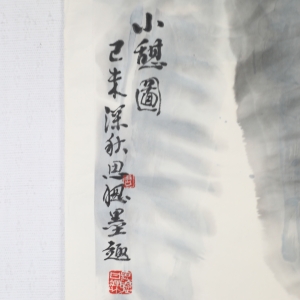 小憩圖
己未深秋思聰墨趣